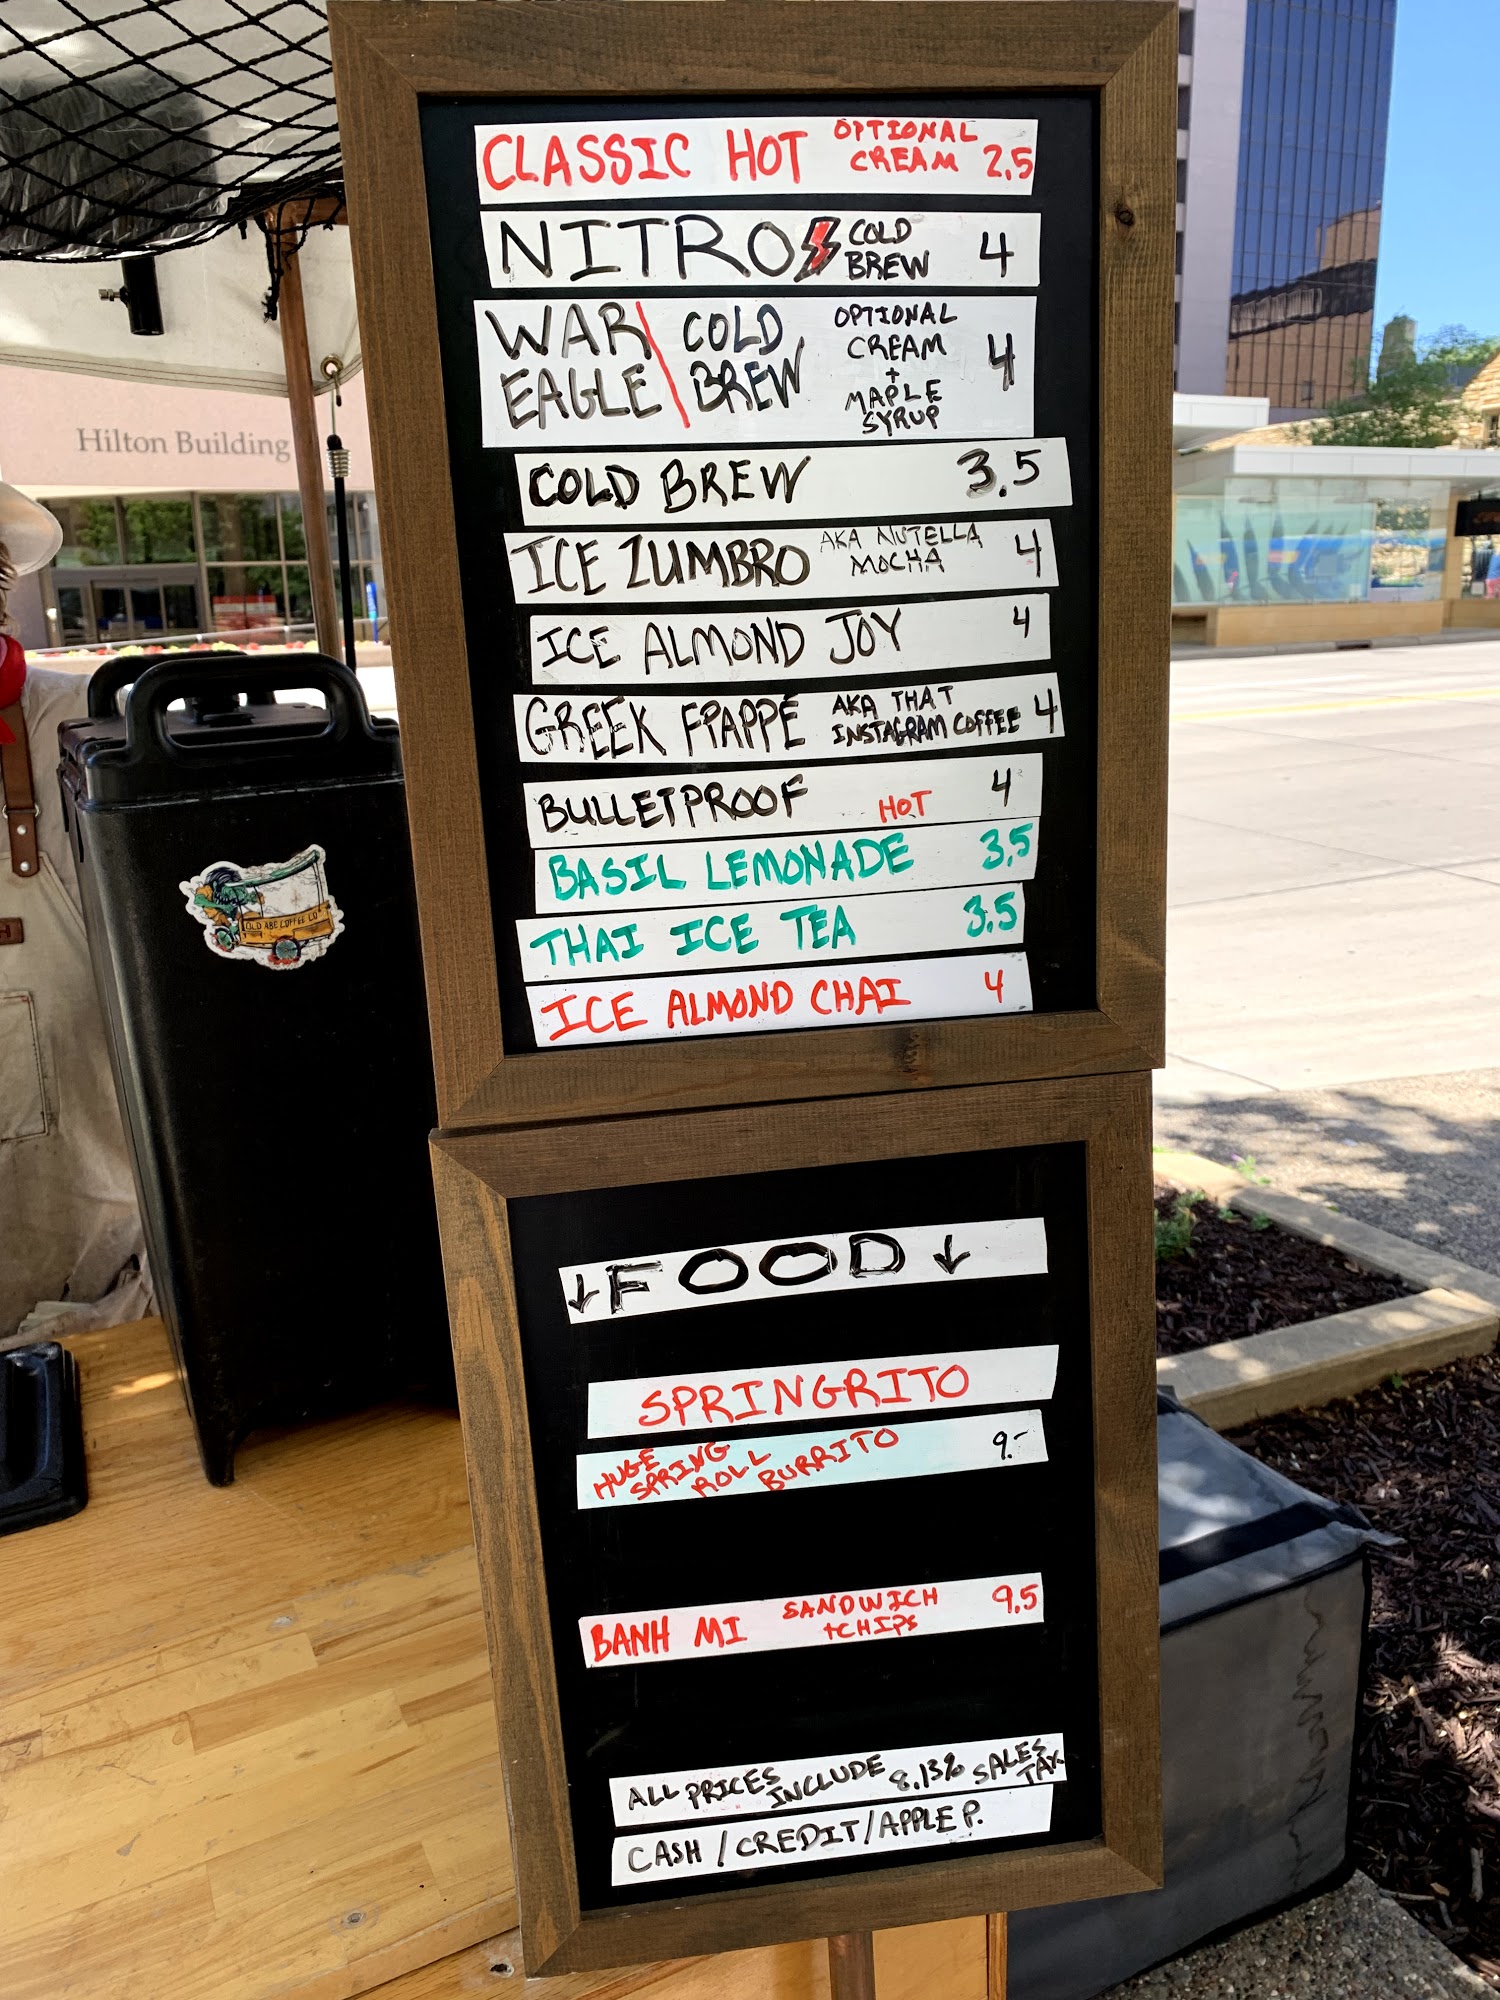 CLASSIC HOT OPTIONAL CREAM 2.5
NITRO COLD BREW 4
WAR EAGLE COLD BREW OPTIONAL CREAM + MAPLE SYRUP 4
COLD BREW 3.5
ICE ZUMBRO AKA NUTELLA MOCHA 4
ICE ALMOND JOY 4
GREEK FRAPPÉ AKA THAT INSTAGRAM COFFEE 4
BULLETPROOF HOT 4
BASIL LEMONADE 3.5
THAI ICE TEA 3.5
ICE ALMOND CHAI 4
↓ FOOD ↓
SPRINGRITO
HUGE SPRING ROLL BURRITO 9.-
BANH MI SANDWICH +CHIPS 9.5
ALL PRICES INCLUDE 8.13% SALES TAX
CASH / CREDIT / APPLE P.
Hilton Building
OLD ABE COFFEE CO